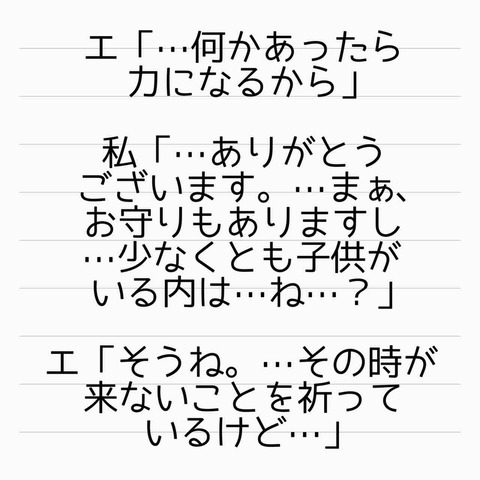 エ「…何かあったら
力になるから」
私「…ありがとう
ございます。…まぁ、
お守りもありますし
…少なくとも子供が
いる内は…ね…？」
エ「そうね。…その時が
来ないことを祈って
いるけど…」